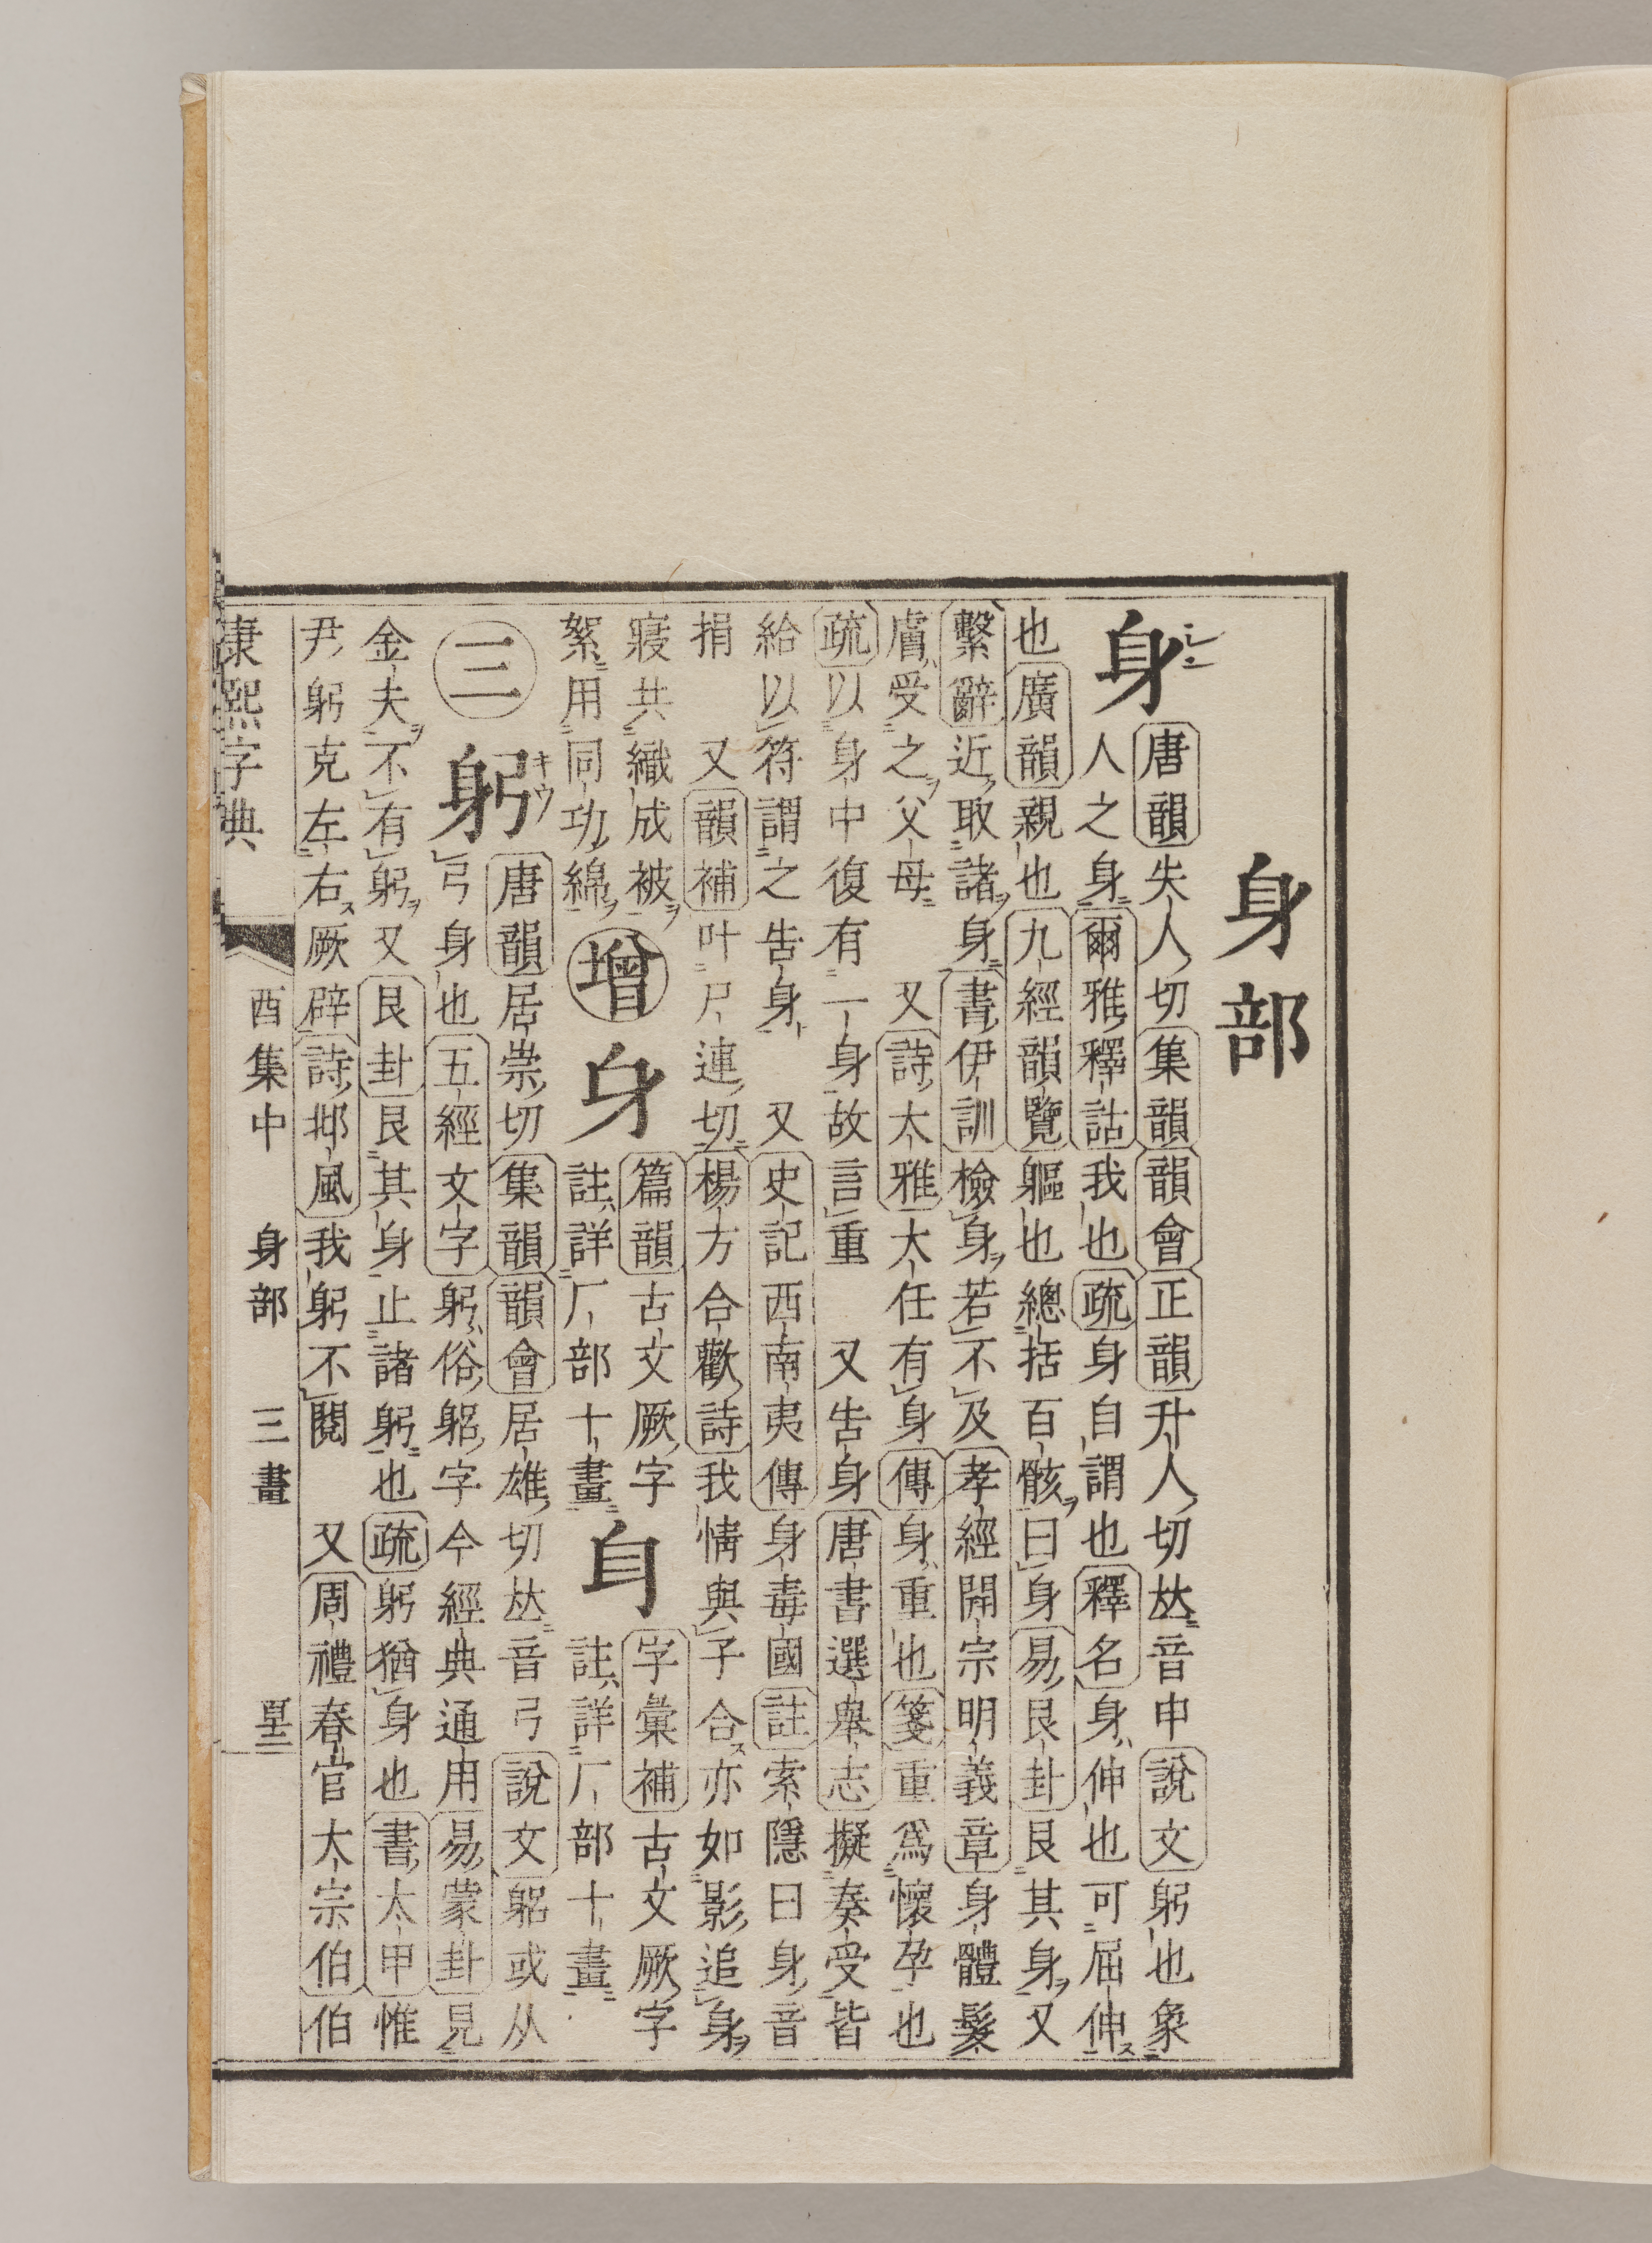 身部
身
唐韻失人切集韻韻會正韻升人切𠀤音申說文躬也象
人之身爾雅釋詁我也疏身自謂也釋名身伸也可屈伸
也廣韻親也九經韻覽軀也總括百骸曰身易艮卦艮其身又
繫辭近取諸身書伊訓檢身若不及孝經開宗明義章身體髮
膚受之父母 又詩大雅大任有身傳身重也箋重爲懷孕也
疏以身中復有一身故言重 又告身唐書選舉志擬奏受皆
給以符謂之告身 又史記西南夷傳身毒國註索隱曰身音
捐 又韻補叶尸連切楊方合歡詩我情與子合亦如影追身
寢共織成被
絮用同功綿
增
篇韻古文厥字
註詳厂部十畫
字彙補古文厥字
註詳厂部十畫
三
躬 キウ
唐韻居崇切集韻韻會居雄切𠀤音弓說文躳或从
弓身也五經文字躬俗躳字今經典通用易蒙卦見
金夫不有躬又艮卦艮其身止諸躬也疏躬猶身也書太甲惟
尹躬克左右厥辟詩邶風我躬不閱 又周禮春官大宗伯伯
康熙字典 酉集中 身部 三畫